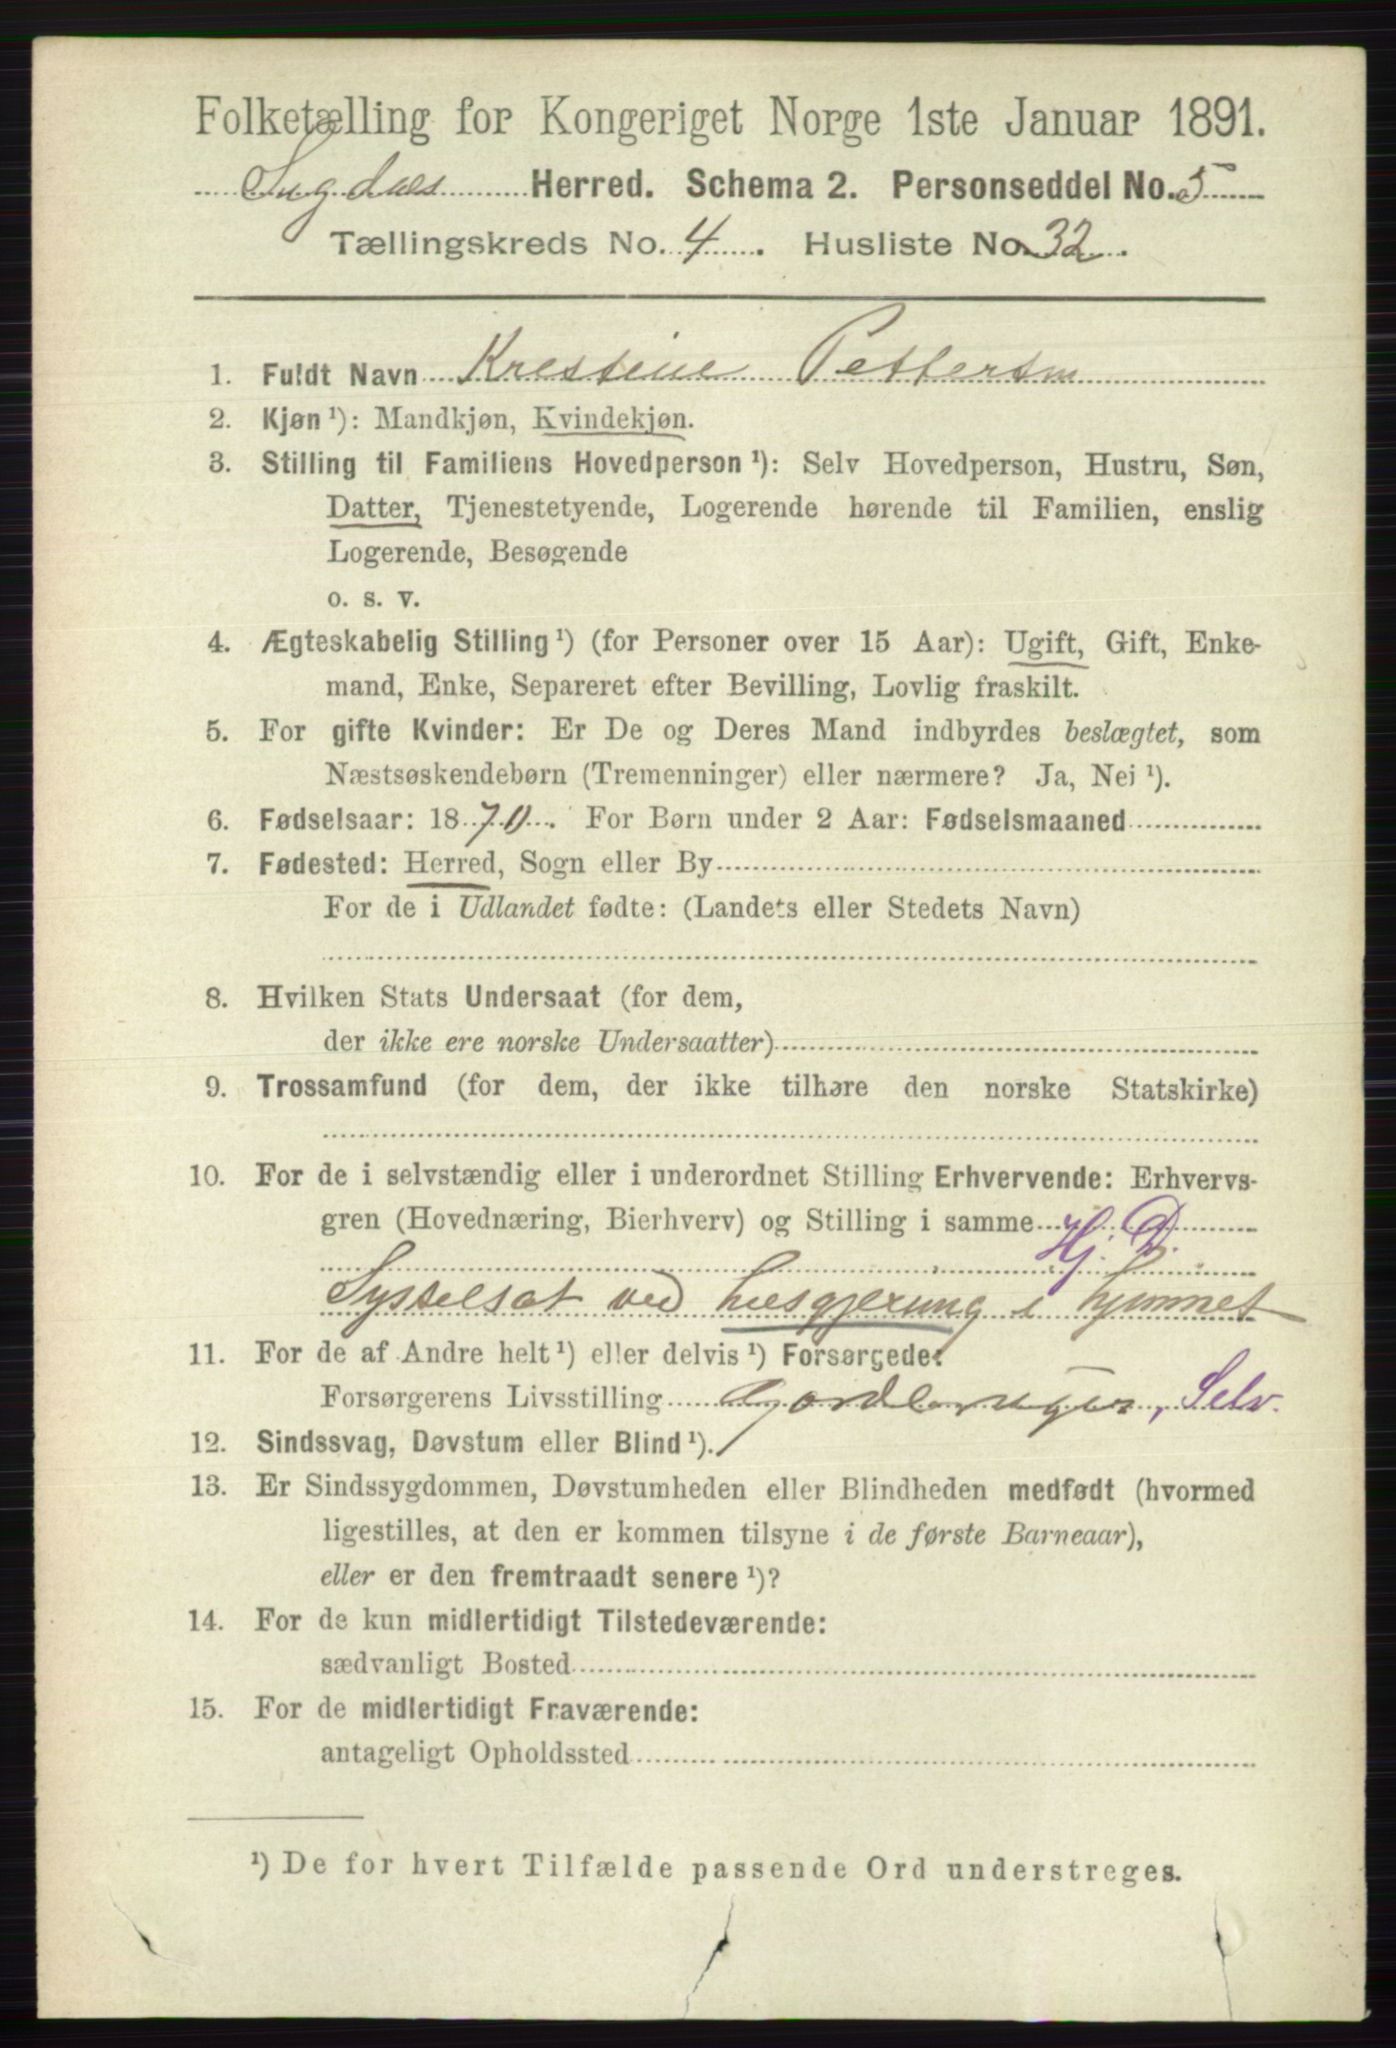 Folketælling for Kongeriget Norge 1ste Januar 1891.
Sigdals Herred. Schema 2. Personseddel No. 5
Tællingskreds No. 4. Husliste No. 32.
1. Fuldt Navn Krestine Pettersen
2. Kjøn ¹): Mandkjøn, Kvindekjøn.
3. Stilling til Familiens Hovedperson ¹): Selv Hovedperson, Hustru, Søn,
Datter, Tjenestetyende, Logerende hørende til Familien, enslig
Logerende, Besøgende
o. s. v.
4. Ægteskabelig Stilling ¹) (for Personer over 15 Aar): Ugift, Gift, Enke-
mand, Enke, Separeret efter Bevilling, Lovlig fraskilt.
5. For gifte Kvinder: Er De og Deres Mand indbyrdes beslægtet, som
Næstsøskendebørn (Tremenninger) eller nærmere? Ja, Nei ¹).
6. Fødselsaar: 1870. For Børn under 2 Aar: Fødselsmaaned
7. Fødested: Herred, Sogn eller By
For de i Udlandet fødte: (Landets eller Stedets Navn)
8. Hvilken Stats Undersaat (for dem,
der ikke ere norske Undersaatter)
9. Trossamfund (for dem, der ikke tilhøre den norske Statskirke)
10. For de i selvstændig eller i underordnet Stilling Erhvervende: Erhvervs-
gren (Hovednæring, Bierhverv) og Stilling i samme
Hj. D.
Sysselsat ved husgjerning i hjemmet
11. For de af Andre helt ¹) eller delvis ¹) Forsørgede:
Forsørgerens Livsstilling Gardbruger, Selv.
12. Sindssvag, Døvstum eller Blind ¹).
13. Er Sindssygdommen, Døvstumheden eller Blindheden medfødt (hvormed
ligestilles, at den er kommen tilsyne i de første Barneaar),
eller er den fremtraadt senere ¹)?
14. For de kun midlertidigt Tilstedeværende:
sædvanligt Bosted
15. For de midlertidigt Fraværende:
antageligt Opholdssted
¹) De for hvert Tilfælde passende Ord understreges.